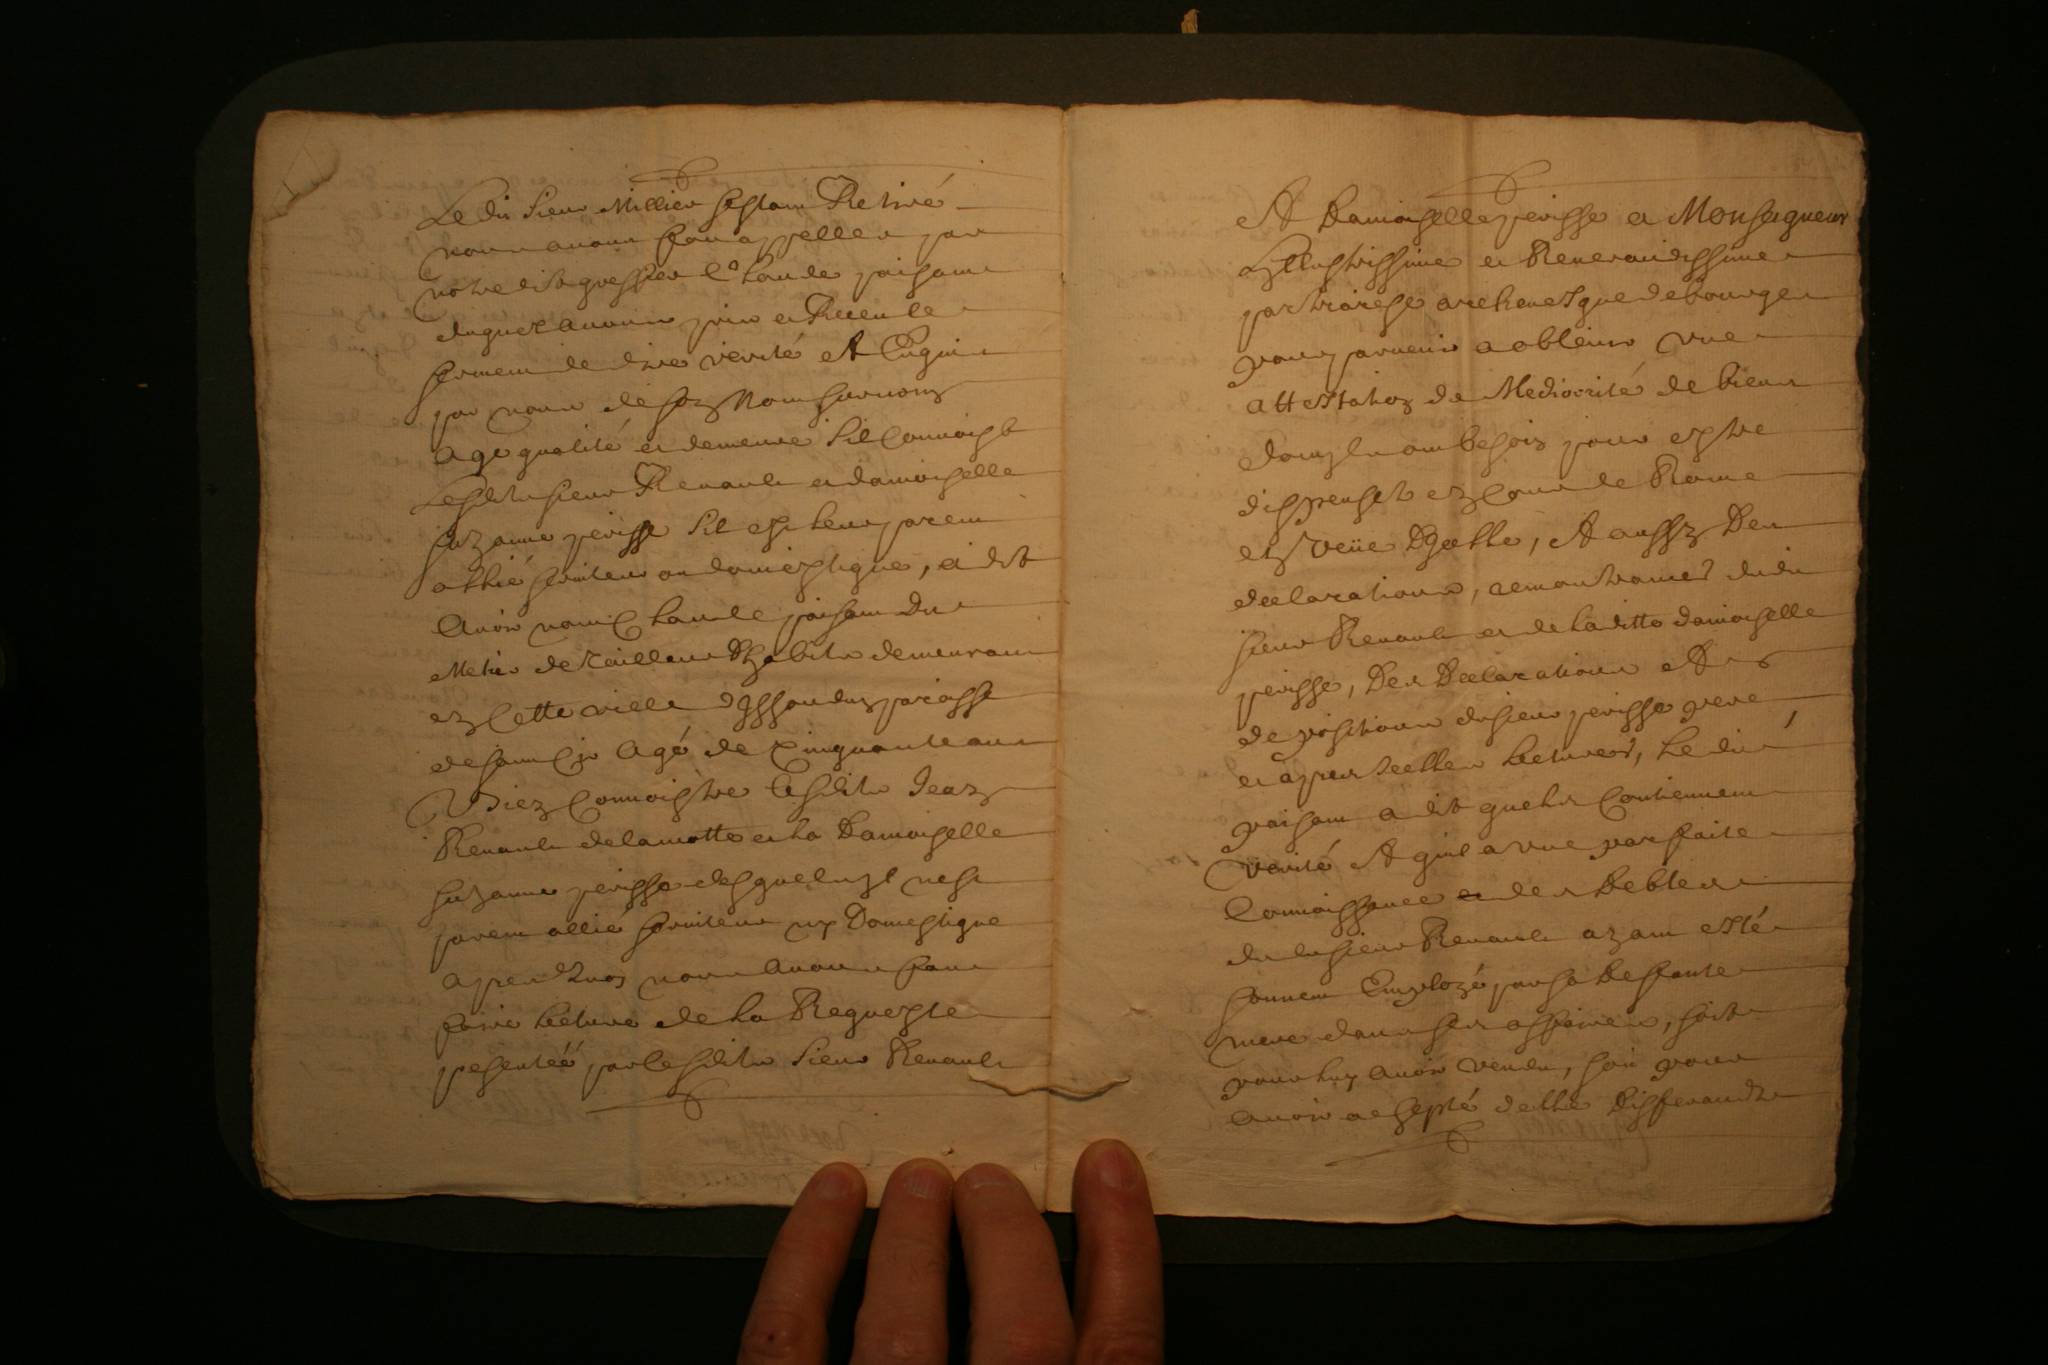 Le dit sieur Millier sestant Retiré
nous avons fait appeller par
notre dit greffier Claude paisant
duquel avons pris et Receu le
serment de dire verité Et Enquis
par nous de son Nom surnom
age qualité et demeure sil connoist
Lesdits sieur Renault et damoiselle
suzanne perisse sil est leur parent
allié serviteur ou domestique, a dit
avoir nom Claude paisant du
Metier de tailleur D'habits demeurant
en cette ville D'Issoudun paroisse
de saint Cir agé de cinquante ans
Bien connoistre lesdits Jean
Renault delamotte et la Damoiselle
suzanne perisse desquels il nest
parent allié serviteur ny Domestique
apres quoy nous avons fait
faire lecture de la Requeste
presentéé par lesdits sieur Renault
Et Damoiselle perisse a Monseigneur
Illustrissime et Reverendissime
patriarche archevesque de bourges
pour parvenir a obtenir une
attestation de Mediocrité de biens
dont ils ont besoin pour estre
dispensés en Cour de Rome
en veüe D'Jcelle, Et aussy Des
declarations, remontrances dudit
sieur Renault et de laditte damoiselle
perisse, Des Declarations Et
depositions du sieur perisse pere
et apres Jcelles lectures, Ledit
paisant a dit quelles contiennent
verité Et quil a une parfaite
connoissance et des Debtes
dudit sieur Renault ayant esté
souvent Employé par sa Deffunte
mere dans ses affaires, soit
pour luy avoir vendu, soit pour
avoir achepté delle Differands